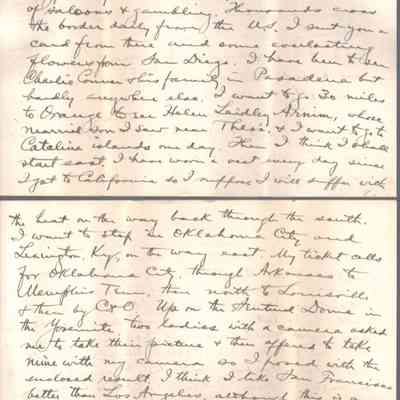 of saloons & gambling. Thousands cross
the border daily from the U.S. I sent you a
card from there and some everlasting
flowers from San Diego. I have been to see
Charlie & his family in Pasadena but
hardly anywhere else. I want to go 30 miles
to Orange to see Helen Laidley Arnim, whose
married son I saw near There, & I want to go to
Catalina islands one day. Then I think I shall
start east. I have worn a vest every day since
I got to California so I suppose I will suffer with
the heat on the way back through the south.
I want to stop in Oklahoma City and
Lexington, Ky, on the way east. My ticket calls
for Oklahoma City, through Arkansas to
Memphis Tenn, then north to Louisville
& then by C&O. Up on the Sentinel Dome in
the Yosemite two ladies with a camera asked
me to take their picture & then offered to take
mine with my camera so I posed with the
enclosed result. I think I like San Francisco
better than Los Angeles, although this is a